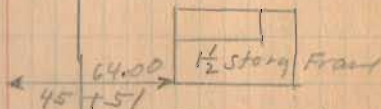 64.00
1½ Story Frame
45 + 51